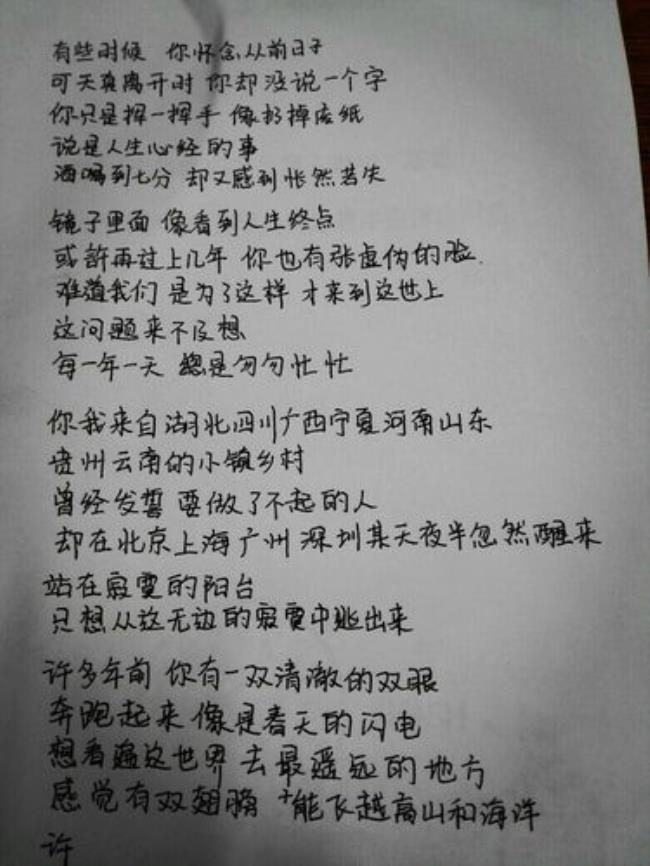 有些时候 你怀念从前日子
可天真离开时 你却没说一个字
你只是挥一挥手 像扔掉废纸
说是人生必经的事
酒喝到七分 却又感到怅然若失
镜子里面 像看到人生终点
或許再过上几年 你也有张虚伪的脸
难道我们 是为了这样 才来到这世上
这问题来不及想
每一年一天 總是匆匆忙忙
你我来自湖北四川广西宁夏河南山东
贵州云南的小镇乡村
曾经发誓 要做了不起的人
却在北京上海广州深圳某天夜半忽然醒来
站在寂寞的阳台
只想从这无边的寂寞中逃出来
许多年前 你有一双清澈的双眼
奔跑起来 像是春天的闪电
想看遍这世界 去最遥远的地方
感觉有双翅膀 能飞越高山和海洋
许